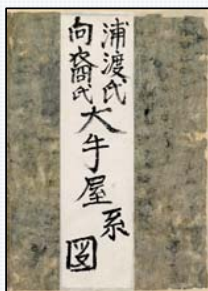 浦渡氏
向裔氏
大牛屋系図